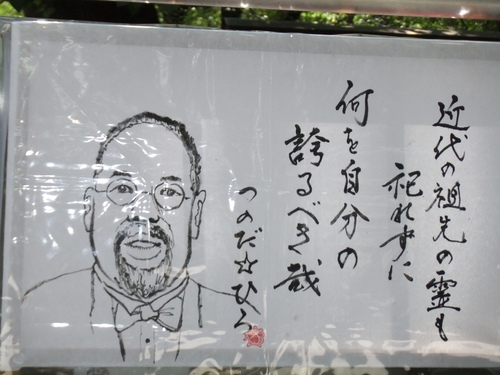 近代の祖先の霊も
祀れずに
何を自分の
誇るべき哉
つのだ☆ひろ